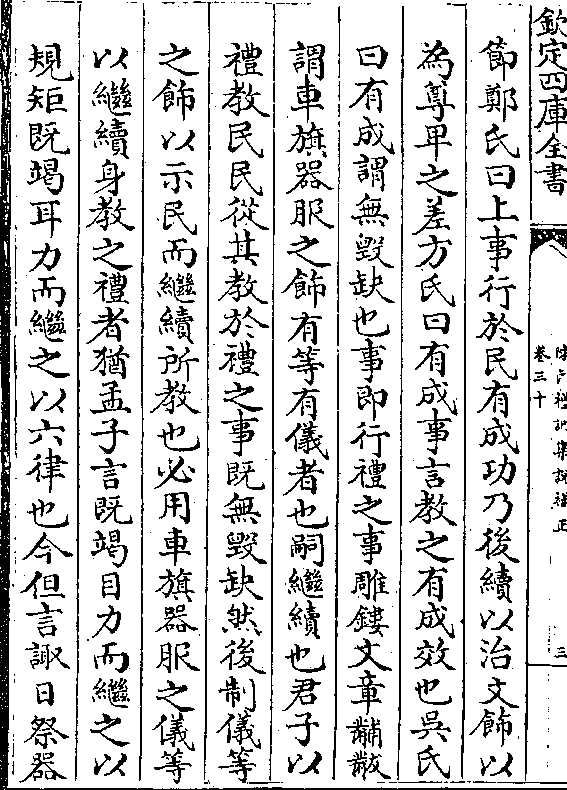 欽定四庫全書
陳氏禮記集說補正
卷三十
三
節鄭氏曰上事行於民有成功乃後續以治文飾以
為尊卑之差方氏曰有成事言教之有成效也吳氏
曰有成謂無毀缺也事即行禮之事雕鏤文章黼黻
謂車旗器服之飾有等有儀者也嗣繼續也君子以
禮教民民從其教於禮之事既無毀缺然後制儀等
之飾以示民而繼續所教也必用車旗器服之儀等
以繼續身教之禮者猶孟子言既竭目力而繼之以
規矩既竭耳力而繼之以六律也今但言諏日祭器